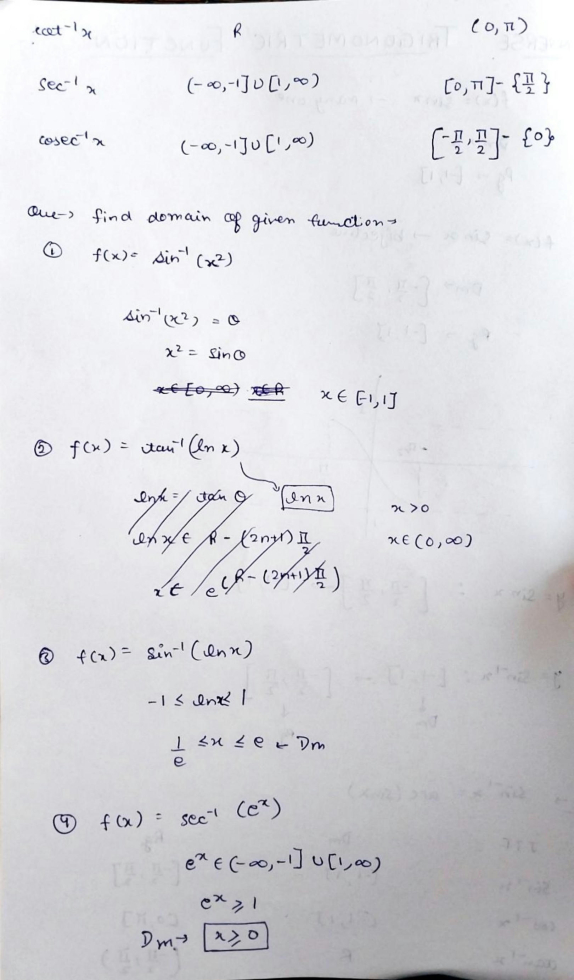 cot⁻¹x R (0, π)
sec⁻¹x (-∞,-1]∪[1,∞) [0,π]-{π/2}
cosec⁻¹x (-∞,-1]∪[1,∞) [-π/2, π/2]-{0}
Que→ find domain of given function→
① f(x)= sin⁻¹(x²)
sin⁻¹(x²) = θ
x² = sinθ
x∈[0,∞) x∈R x∈[-1,1]
② f(x) = tan⁻¹(ln x)
ln x = tan θ ln x
x>0
ln x ∈ R - (2n+1)π/2 x∈(0,∞)
x∈ e^(R-(2n+1)π/2)
③ f(x) = sin⁻¹(ln x)
-1 ≤ ln x ≤ 1
1/e ≤ x ≤ e ← Dm
④ f(x) = sec⁻¹(eˣ)
eˣ ∈ (-∞,-1] ∪ [1,∞)
eˣ ≥ 1
Dm→ x ≥ 0